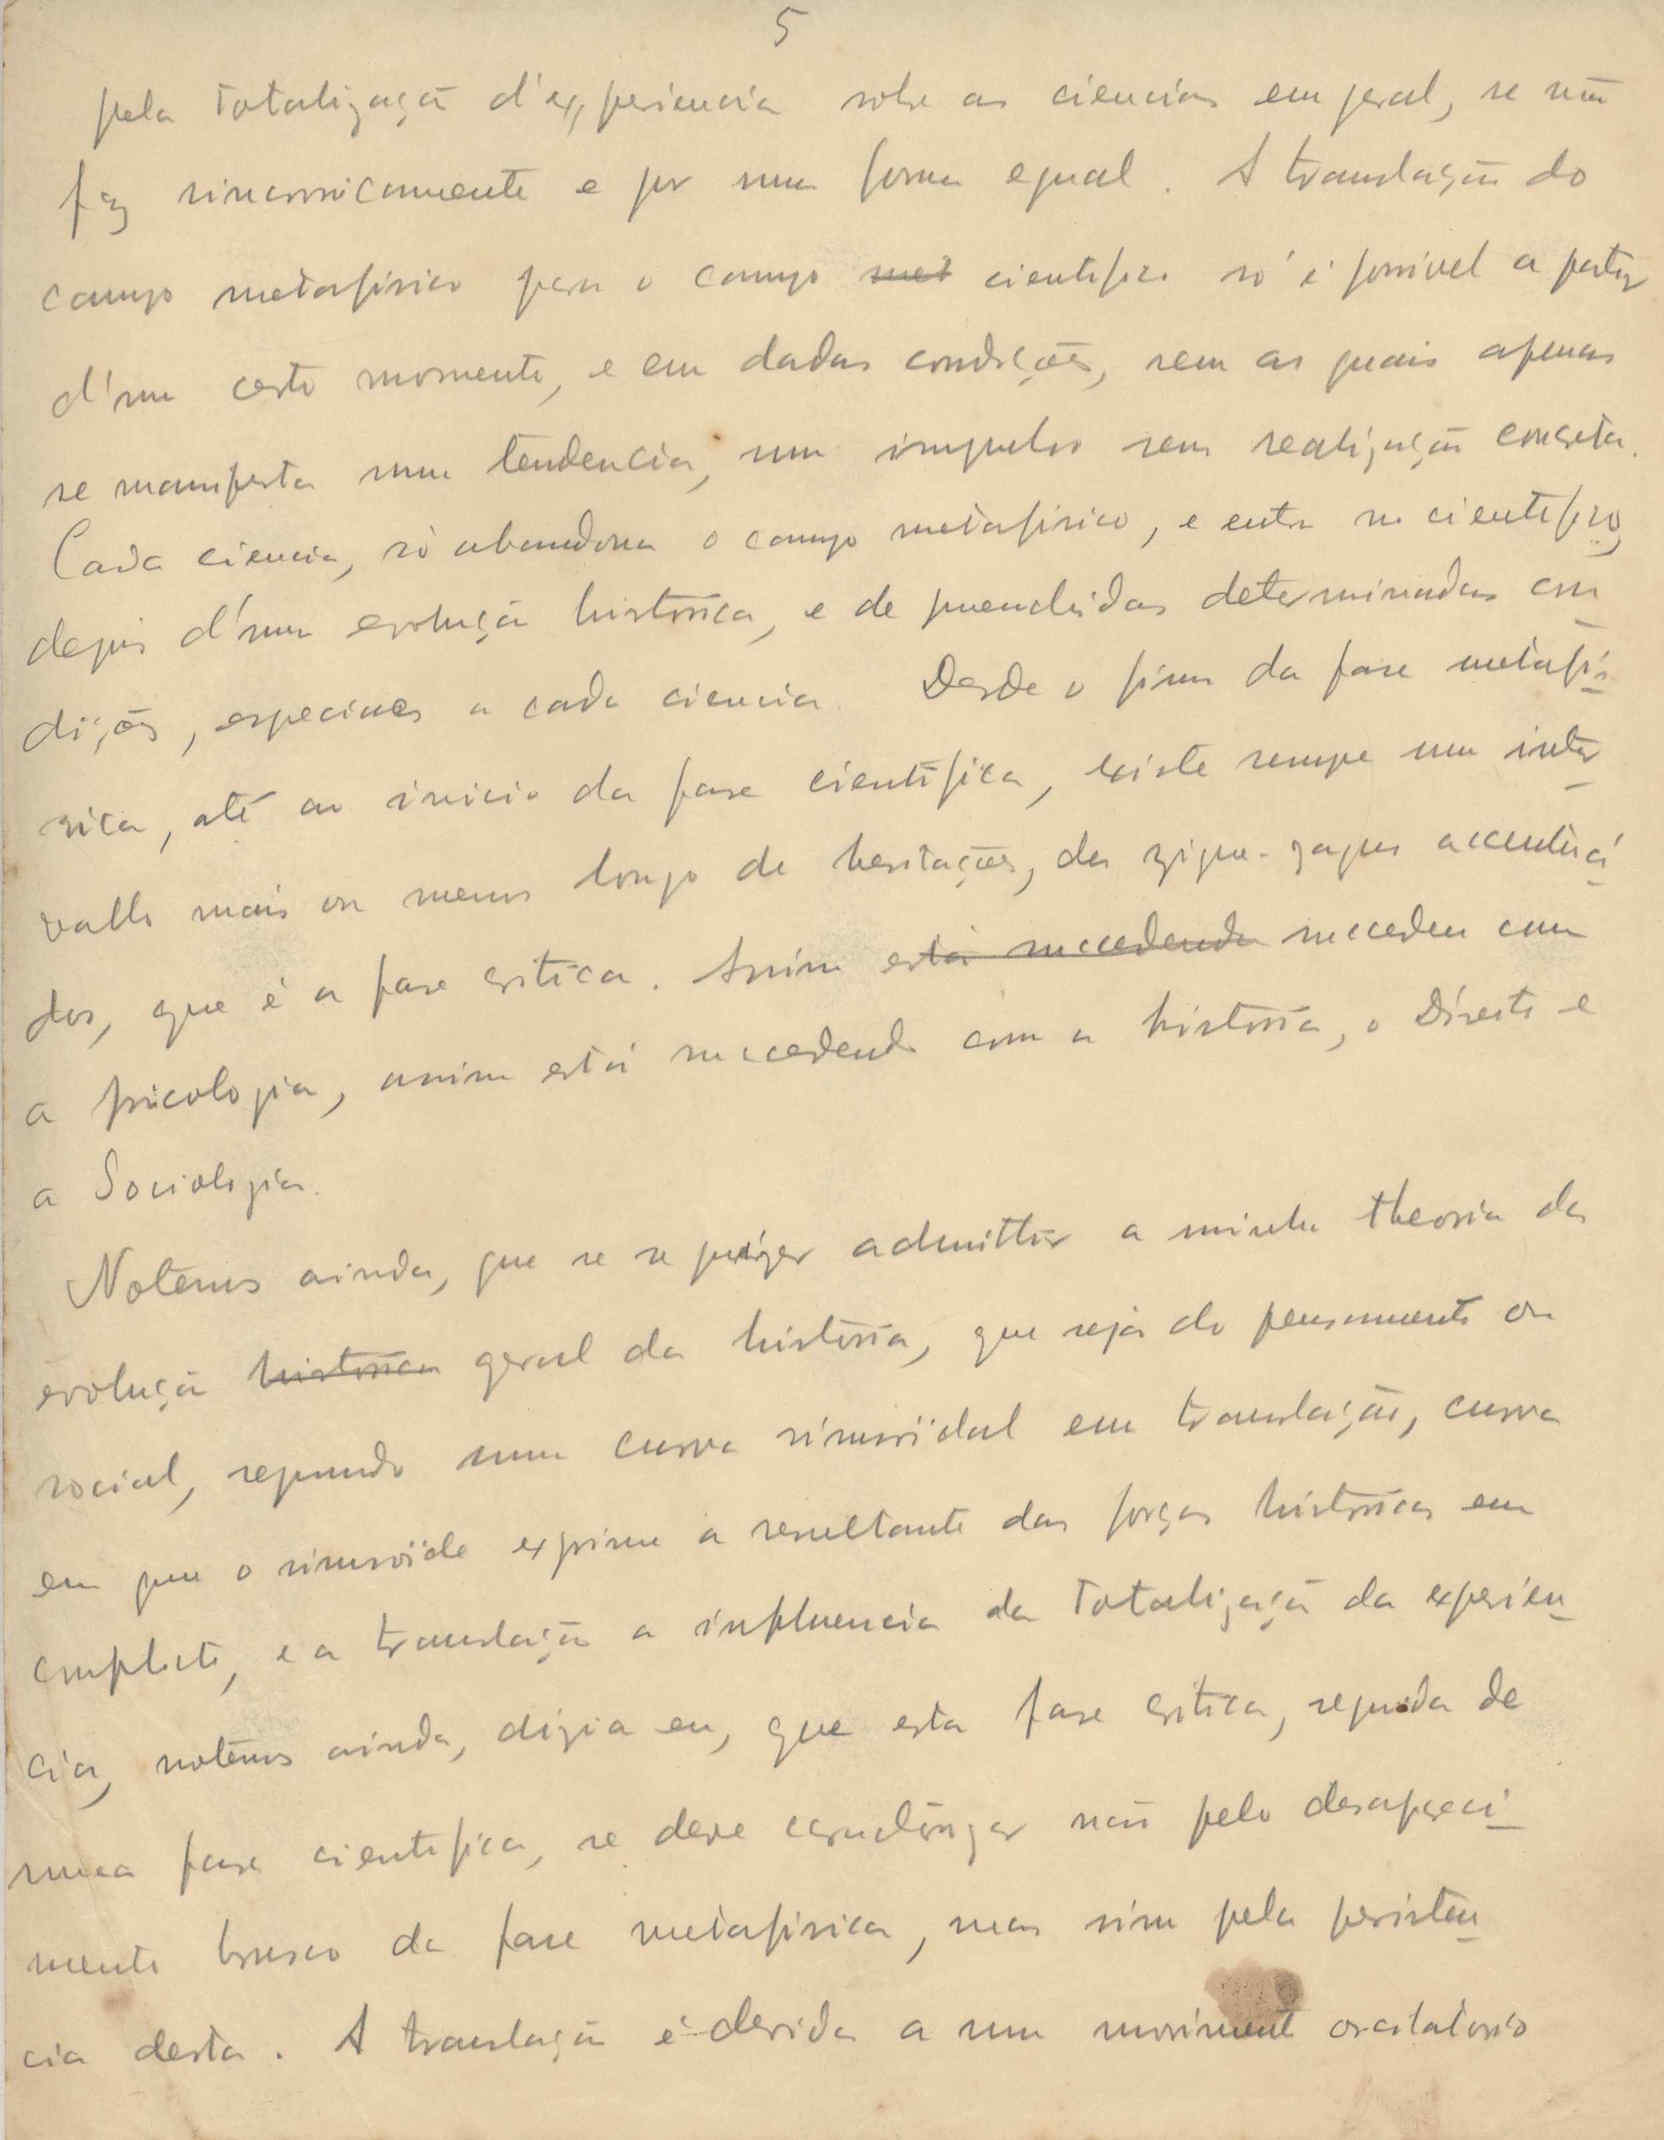 5
pela totalização d'experiencia sobre as ciencias em geral, se não
faz sincronicamente e por uma forma egual. A translação do
campo metafisico para o campo met cientifico só é possivel a partir
d'um certo momento, e em dadas condições, sem as quais apenas
se manifesta uma tendencia, um impulso sem realização concreta.
Cada ciencia, só abandona o campo metafisico, e entra no cientifico,
depois d'uma evolução historica, e de preenchidas determinadas con
dições, especiaes a cada ciencia. Desde o fim da fase metafi
sica, até ao inicio da fase cientifica, existe sempre um inter
vallo mais ou menos longo de hesitações, de zigue-zagues accentua
dos, que é a fase critica. Assim está succedendo succedeu com
a psicologia, assim está succedendo com a historia, o Direito e
a Sociologia.
Notemos ainda, que se se quizer admittir a minha theoria da
evolução historica geral da historia, quer seja do pensamento ou
social, segundo uma curva sinusoidal em translação, curva
em que o sinusoide exprime a resultante das forças historicas em
conflicto, e a translação a influencia da totalização da experien
cia, notemos ainda, dizia eu, que esta fase critica, seguida de
uma fase cientifica, se deve caracterizar não pelo desapareci
mento brusco da fase metafisica, mas sim pela persisten
cia desta. A translação é devida a um movimento oscilatorio